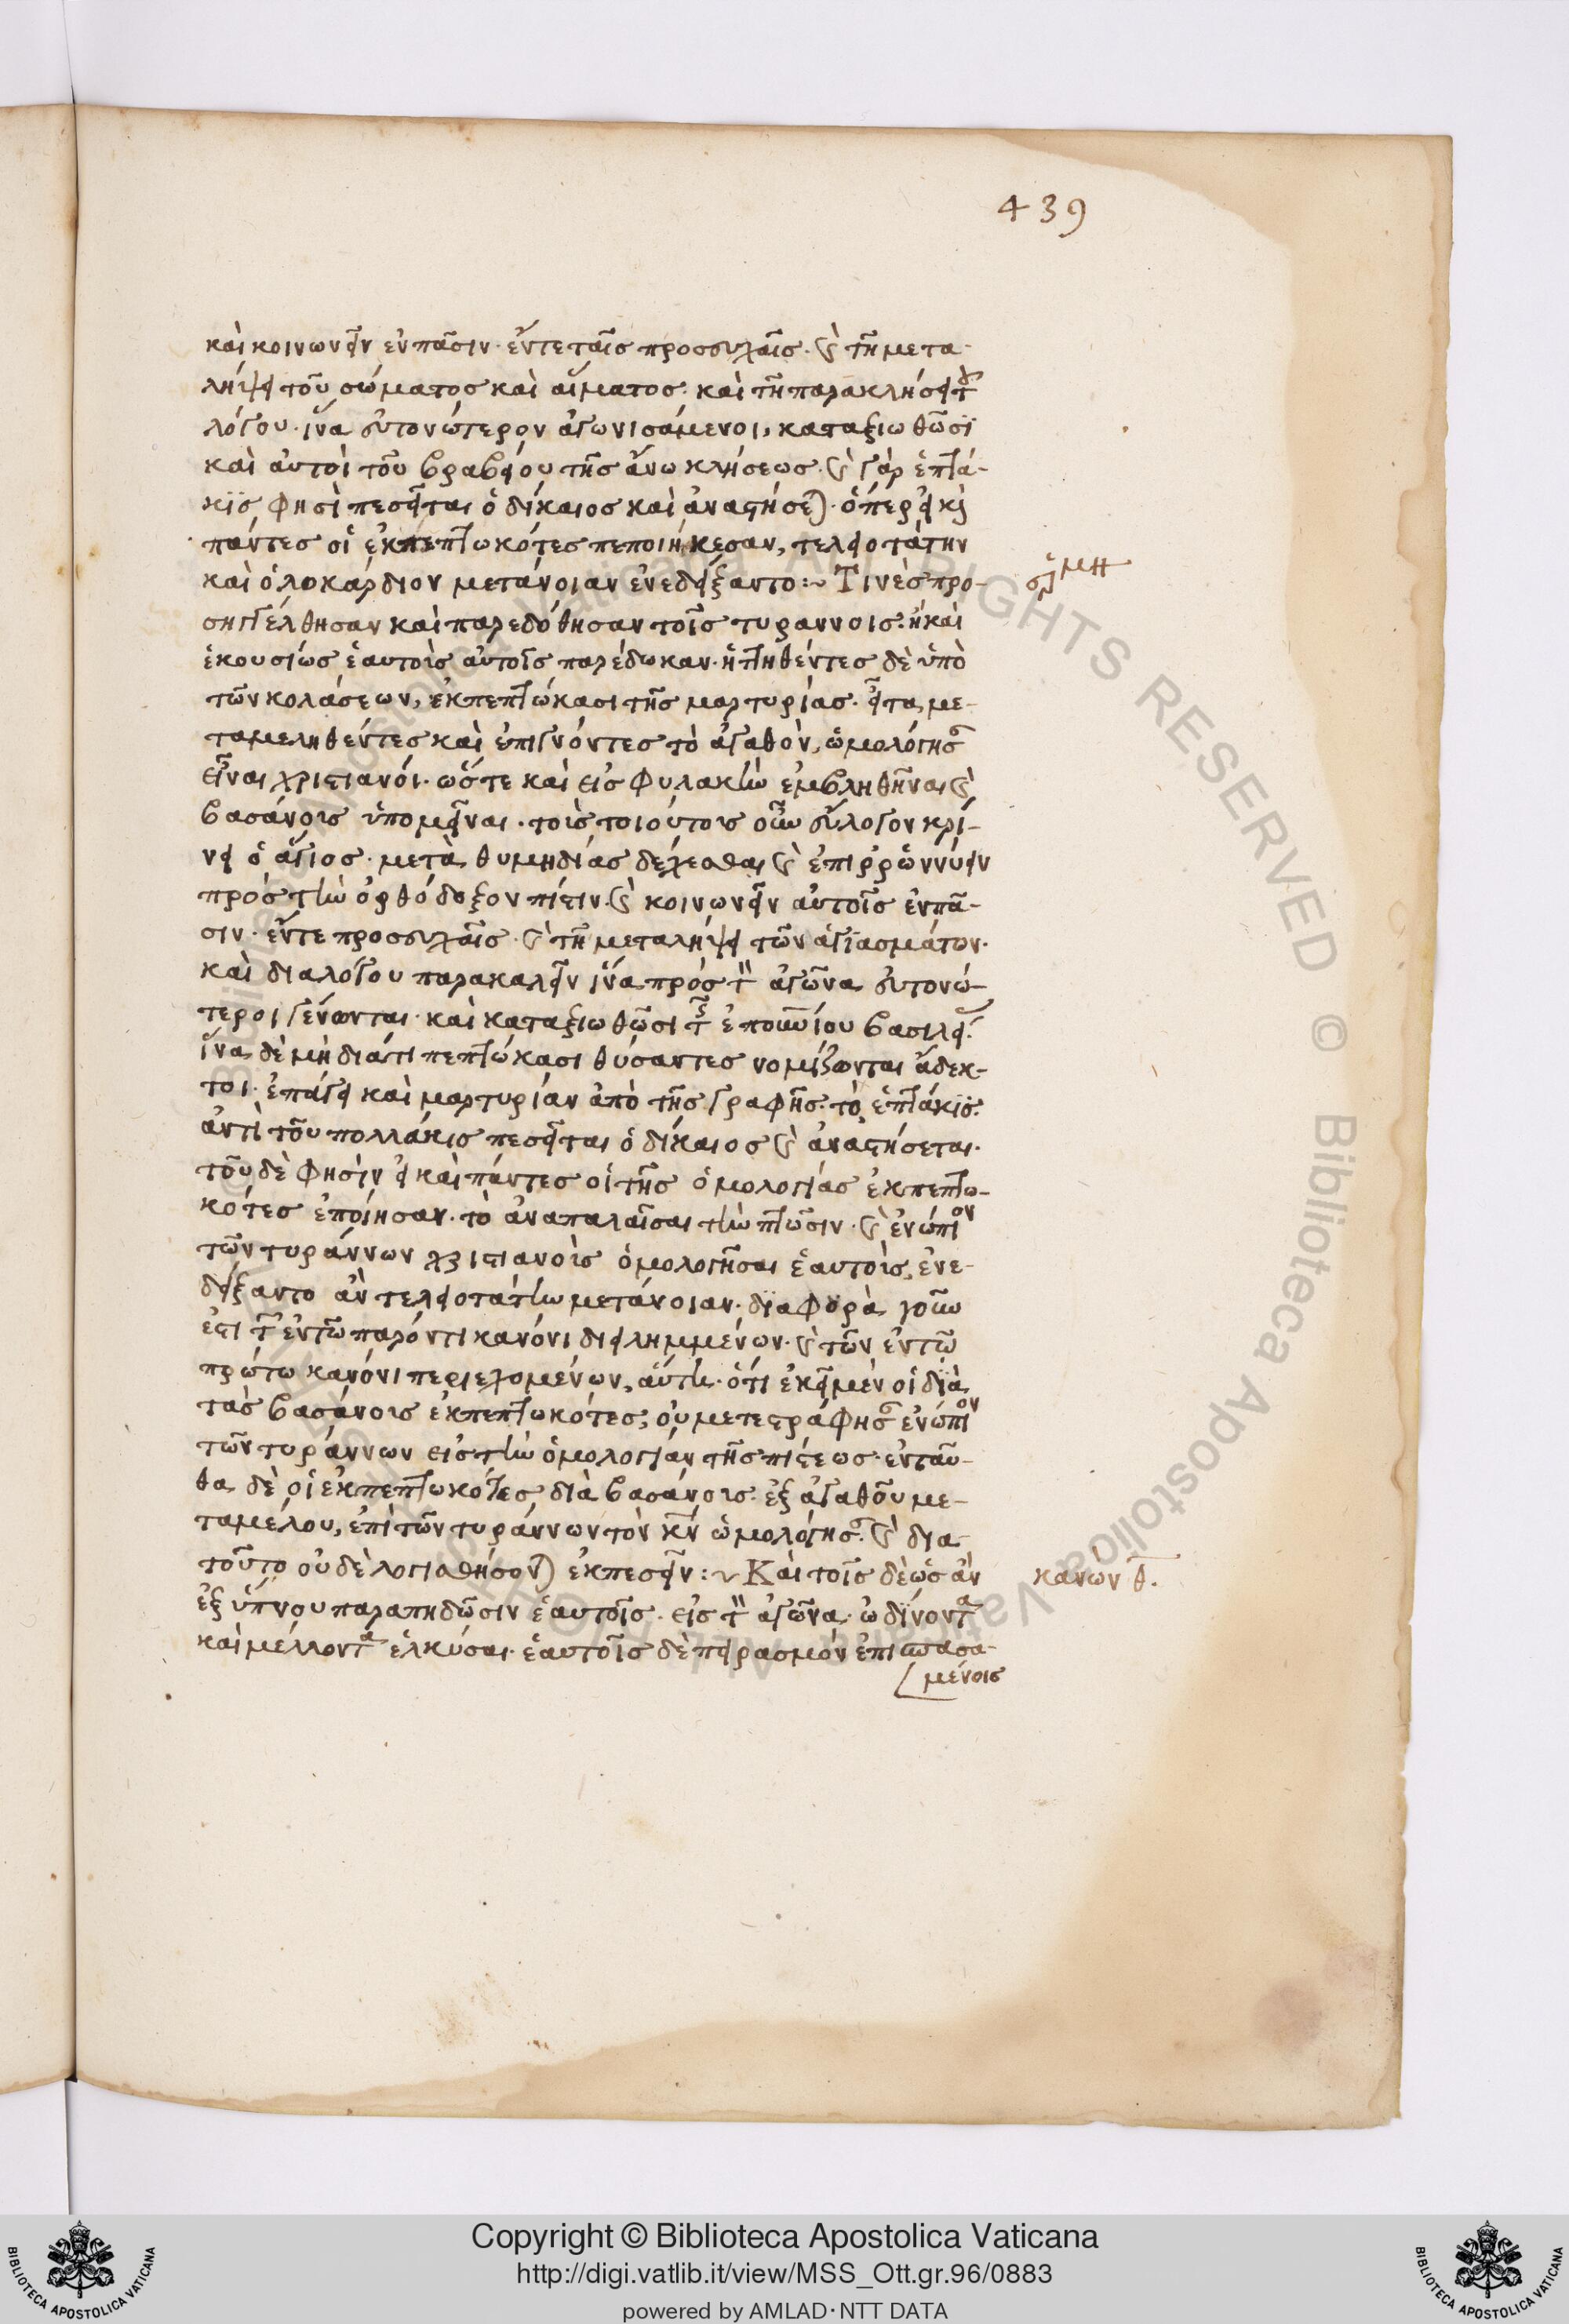 439
καὶ κοινωνεῖν ἐν πᾶσιν· ἔν τε ταῖς προσευχαῖς· καὶ τῆ μετα-
λήψει τοῦ σώματος καὶ αἵματος· καὶ τῆ παρακλήσει τοῦ
λόγου· ἵνα εὐτονώτερον ἀγωνισάμενοι, καταξιωθῶσϊ
καὶ αὐτοὶ τοῦ βραβείου τῆς ἄνω κλήσεως· καὶ γὰρ ἑπτά-
κϊς φησὶ πεσεῖται ὁ δίκαιος καὶ ἀναστήσεται· ὅπερ εἰ καὶ
πάντες οἱ ἐκπεπτωκότες πεποιήκεσαν, τελειοτάτην
καὶ ὁλοκάρδιον μετάνοιαν ἐνεδείξαντο:~ Τινὲς προ-
ἑρμη
σηγγέλθησαν καὶ παρεδόθησαν τοῖς τυράννοις· ἢ καὶ
ἑκουσίως ἑαυτοὺς αὐτοῖς παρέδωκαν· ἡττηθέντες δὲ ὑπὸ
τῶν κολάσεων, ἐκπεπτώκασι τῆς μαρτυρίας· εἶτα με-
ταμεληθέντες καὶ ἐπιγνόντες τὸ ἀγαθὸν, ὡμολόγησαν
εἶναι χριστιανοί· ὥστε καὶ εἰς φυλακὴν ἐμβληθῆναι καὶ
βασάνοις ὑπομεῖναι· τοὺς τοιούτους οὖν εὔλογον κρί-
νει ὁ ἅγιος· μετὰ θυμηδίας δέχεσθαι καὶ ἐπιρρωννύειν
πρὸς τὴν ὀρθόδοξον πίστιν· καὶ κοινωνεῖν αὐτοῖς ἐν πᾶ-
σιν· ἔν τε προσευχαῖς· καὶ τῆ μεταλήψει τῶν ἁγϊασμάτων·
καὶ διαλόγου παρακαλεῖν ἵνα πρὸς τὸν ἀγῶνα εὐτονώ-
τεροι γένωνται· καὶ καταξιωθῶσι τῆς ἐπουρανίου βασιλείας·
ἵνα δὲ μὴ διάτι πεπτώκασι θύσαντες νομίζωνται ἄδεκ-
τοι· ἐπάγει καὶ μαρτυρίαν ἀπὸ τῆς γραφῆς· τὸ ἑπτάκϊς·
ἀντὶ τοῦ πολλάκις πεσεῖται ὁ δίκαιος καὶ ἀναστήσεται·
τοῦ δὲ φησὶν εἰ καὶ πάντες οἱ τῆς ὁμολογίας ἐκπεπτω-
κότες ἐποίησαν· τὸ ἀναπαλαῖσαι τὴν πτῶσιν· καὶ ἐνώπιον
τῶν τυράννων χριστιανοὺς ὁμολογῆσαι ἑαυτοὺς, ἐνε-
δείξαντο ἂν τελειοτάτην μετάνοιαν· δϊαφορὰ γοῦν
ἐστι τῶν ἐν τῶ παρόντι κανόνι διειλημμένων· καὶ τῶν ἐν τῶ
πρώτω κανόνι περιεχομένων, αὕτη· ὅτι ἐκεῖ μὲν οἱ δϊὰ
τὰς βασάνους ἐκπεπτωκότες, οὐ μετεστράφησαν ἐνώπιον
τῶν τυράννων εἰς τὴν ὁμολογίαν τῆς πίστεως· ἐνταῦ-
θα δὲ οἱ ἐκπεπτωκότες διὰ βασάνους· ἐξ ἀγαθοῦ με-
ταμέλου, ἐπὶ τῶν τυράννων τὸν κν ὡμολόγησαν· καὶ δια
τοῦτο οὐδὲ λογισθήσονται ἐκπεσεῖν:~ Καὶ τοῖς δὲ ὡς ἂν
κανὼν θ.
ἐξ ὕπνου παραπηδῶσιν ἑαυτοῖς· εἰς τὸν ἀγῶνα ὠδίνοντα
καὶ μέλλοντα ἑλκῦσαι· ἑαυτοῖς δὲ πειρασμὸν ἐπισπασα-
μένοις
Copyright © Biblioteca Apostolica Vaticana
http://digi.vatlib.it/view/MSS_Ott.gr.96/0883
powered by AMLAD·NTT DATA